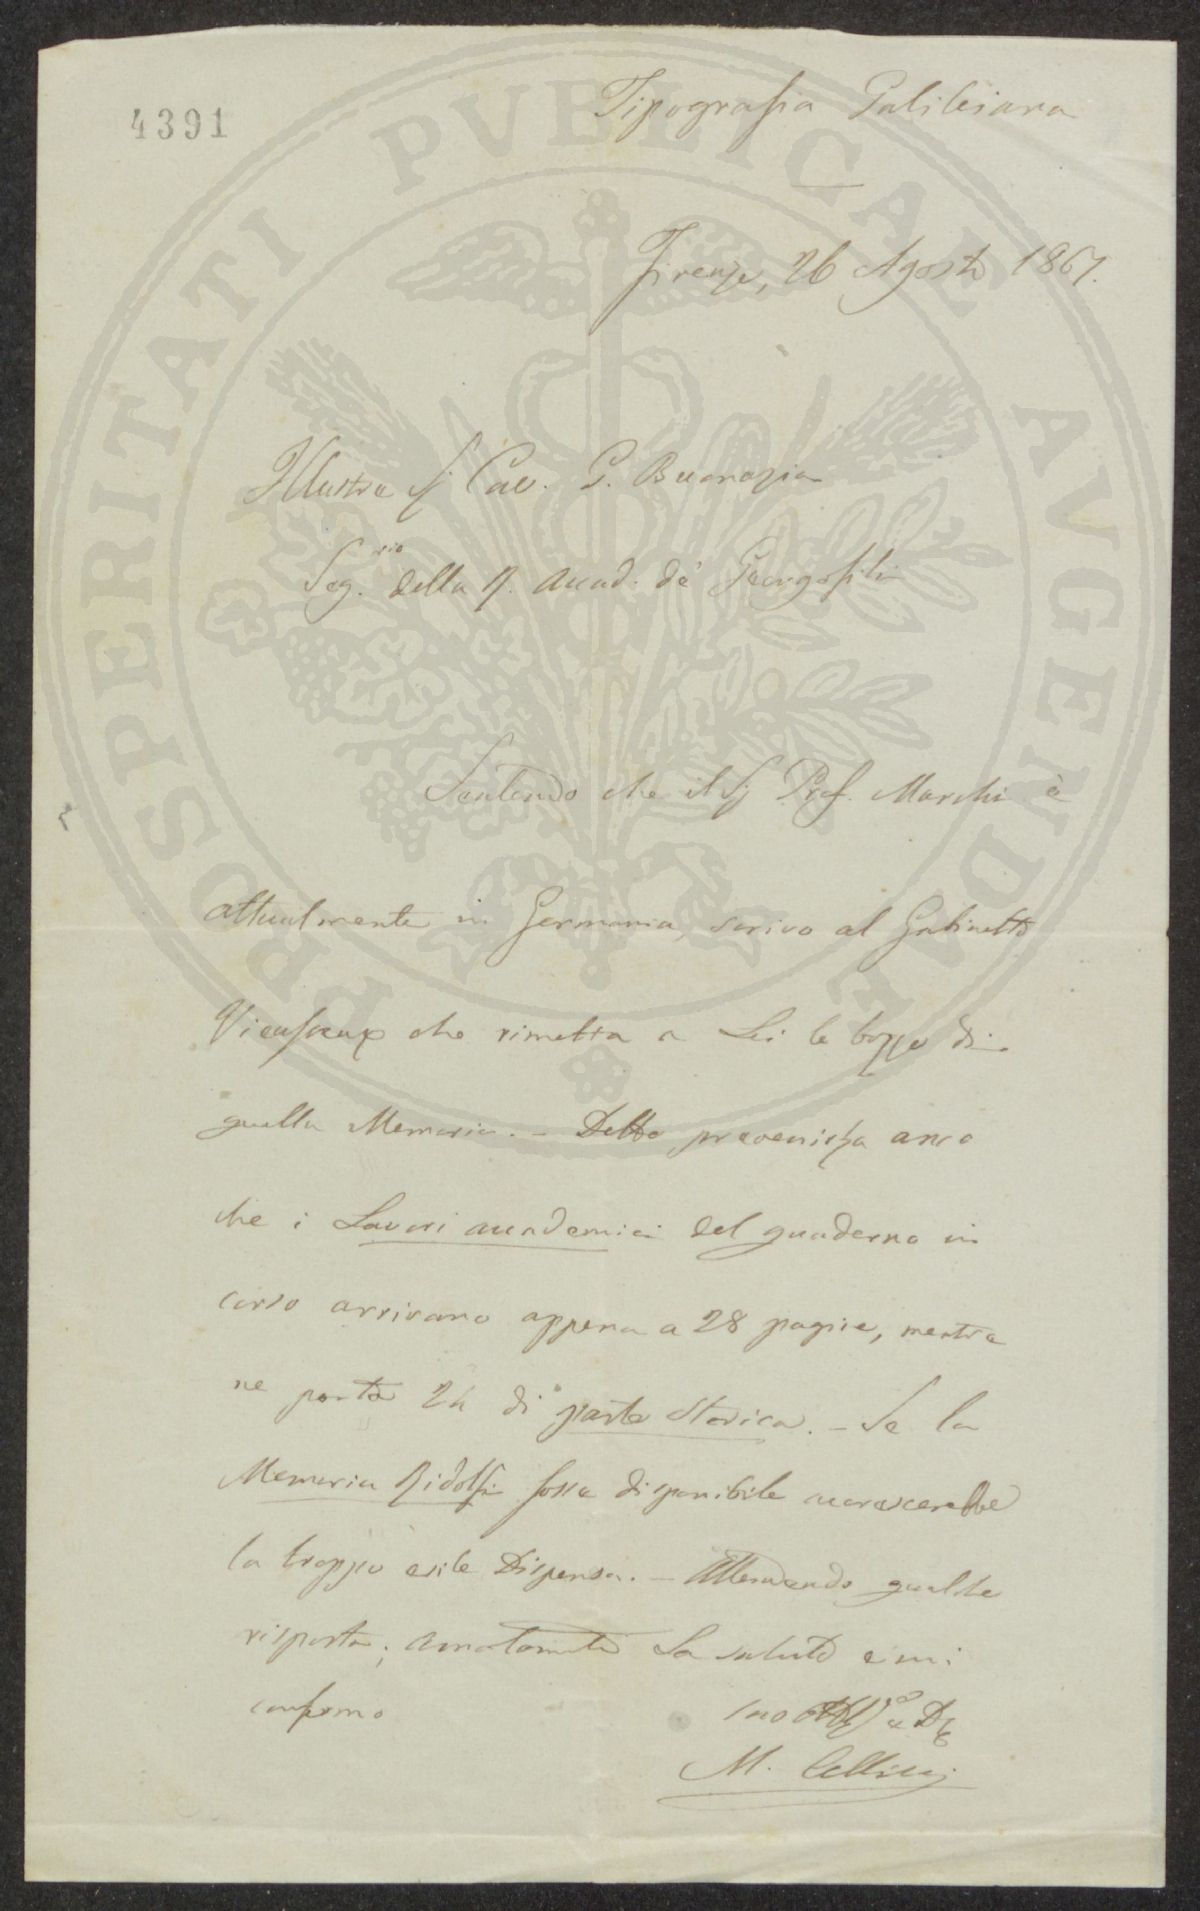 4391
Tipografia Galileiana
Firenze, 26 Agosto 1867.
Illustre Sig. Cav. G. Buonazia
Seg.rio della R. Accad. de' Georgofili
Sentendo che il Sig Prof. Marchi è
attualmente in Germania, scrivo al Gabinetto
Vieusseux che rimetta a Lei le bozze di
quella Memoria. – Debbo prevenirla anco
che i Lavori accademici del quaderno in
corso arrivano appena a 28 pagine, mentre
ne porta 24 di parte storica. – Se la
Memoria Ridolfi fosse disponibile accrescerebbe
la troppo esile Dispensa. – Attendendo qualche
risposta, La saluto e mi
confermo
suo
M. Cellini
PROSPERITATI PVBLICAE AVGENDAE